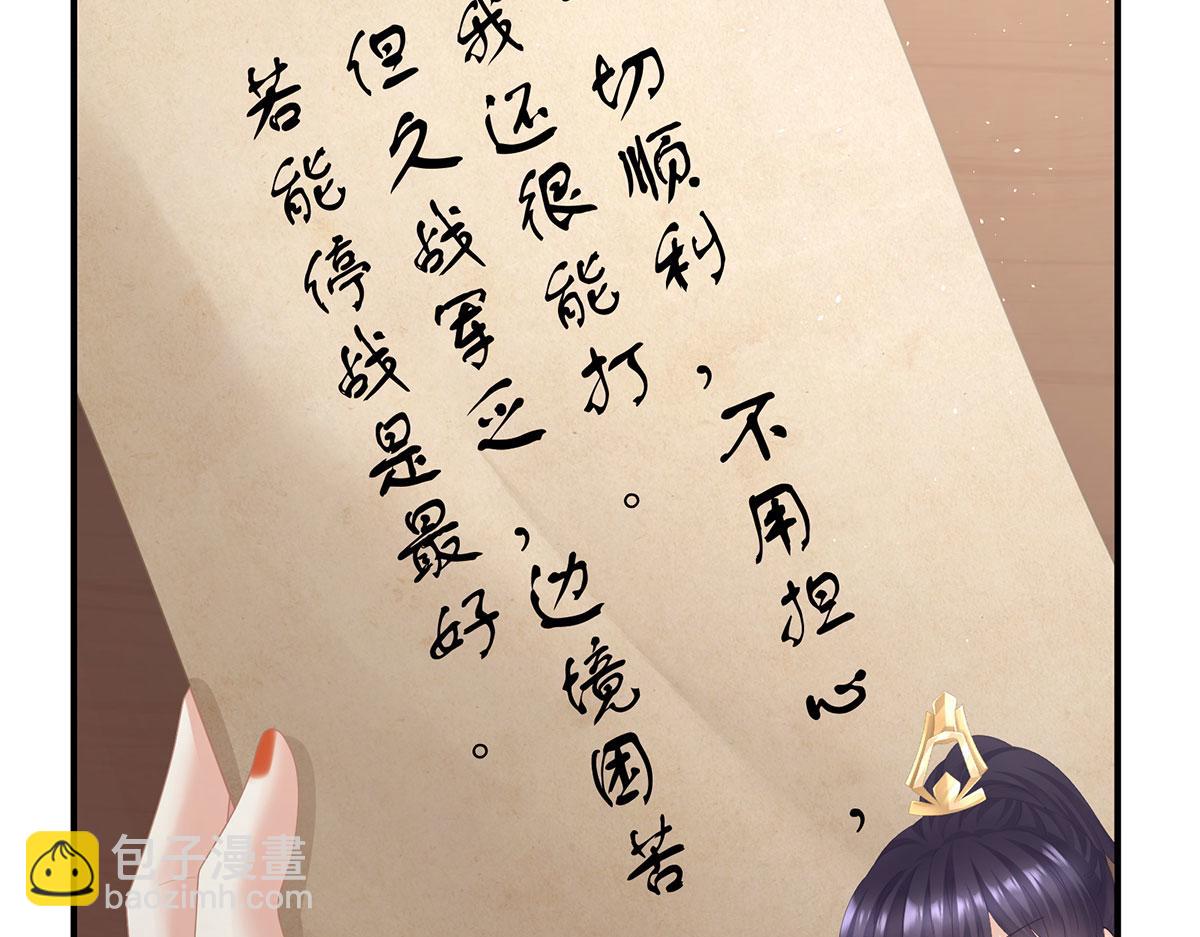 切顺利，不用担心，
我还很能打。
但久战军乏，边境困苦
若能停战是最好。
包子漫畫
baozimh.com